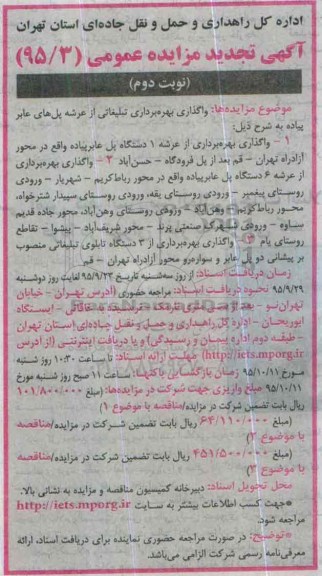 اداره کل راهداری و حمل و نقل جاده‌ای استان تهران
آگهی تجدید مزایده عمومی (۹۵/۳)
(نوبت دوم)
موضوع مزایده‌ها: واگذاری بهره‌برداری تبلیغاتی از عرشه پل‌های عابر
پیاده به شرح ذیل:
۱ - واگذاری بهره‌برداری از عرشه ۱ دستگاه پل عابرپیاده واقع در محور
آزادراه تهران - قم بعد از پل فرودگاه - حسن‌آباد ۲ - واگذاری بهره‌برداری
از عرشه ۶ دستگاه پل عابرپیاده واقع در محور رباط‌کریم - شهریار - ورودی
روستای پیغمبر - ورودی روستای یقه، ورودی روستای سپیدار شترخواه،
محور رباط‌کریم - وهن‌آباد - ورودی روستای وهن‌آباد، محور جاده قدیم
ساوه - ورودی شهرک صنعتی پرند - محور شریف‌آباد - پیشوا - تقاطع
روستای پام ۳ - واگذاری بهره‌برداری از ۳ دستگاه تابلوی تبلیغاتی منصوب
بر پیشانی دو پل عابر و سواره‌رو محور آزادراه تهران - قم
زمان دریافت اسناد: از روز سه‌شنبه تاریخ ۹۵/۹/۲۳ لغایت روز دوشنبه
۹۵/۹/۲۹ نحوه دریافت اسناد: مراجعه حضوری (آدرس تهران - خیابان
تهران‌نو - بعد از ... - نرسیده به خاقانی - ایستگاه
ابوریحان - اداره کل راهداری و حمل و نقل جاده‌ای استان تهران
- طبقه دوم اداره پیمان و رسیدگی) و یا دریافت اینترنتی (از آدرس
http://iets.mporg.ir) مهلت ارائه اسناد: تا ساعت ۱۰:۳۰ روز شنبه
مورخ ۹۵/۱۰/۱۱ زمان بازگشایی پاکتها: ساعت ۱۱ صبح روز شنبه مورخ
۹۵/۱۰/۱۱ مبلغ واریزی جهت شرکت در مزایده‌ها: (مبلغ ۱۰۱/۸۰۰/۰۰۰
ریال بابت تضمین شرکت در مزایده/مناقصه با موضوع ۱)
(مبلغ ۶۴/۱۱۰/۰۰۰ ریال بابت تضمین شرکت در مزایده/مناقصه
با موضوع ۲)
(مبلغ ۴۵۱/۵۰۰/۰۰۰ ریال بابت تضمین شرکت در مزایده/مناقصه
با موضوع ۳)
محل تحویل اسناد: دبیرخانه کمیسیون مناقصه و مزایده به نشانی بالا.
*جهت کسب اطلاعات بیشتر به سایت http://iets.mporg.ir
مراجعه شود.
*توضیح: در صورت مراجعه حضوری نماینده برای دریافت اسناد، ارائه
معرفی‌نامه رسمی شرکت الزامی می‌باشد.